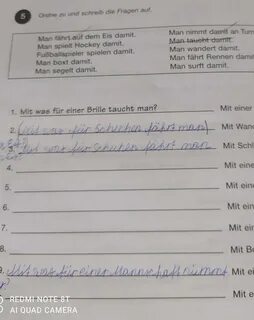 5 Ordne zu und schreib die Fragen auf.
Man fährt auf dem Eis damit.
Man spielt Hockey damit.
Fußballspieler spielen damit.
Man boxt damit.
Man segelt damit.
Man nimmt damit an Turn
Man taucht damit.
Man wandert damit.
Man fährt Rennen dami
Man surft damit.
1. Mit was für einer Brille taucht man? Mit einer
2. Mit was für Schuhen fährt man Mit Wan
3. Mit was für Schuhen fährt man Mit Schl
4. Mit eine
5. Mit eine
6. Mit ein
7. Mit ein
8. Mit B
9. Mit was für einer Mannschaft nimmt Mit ei
Mit e
REDMI NOTE 8T
AI QUAD CAMERA